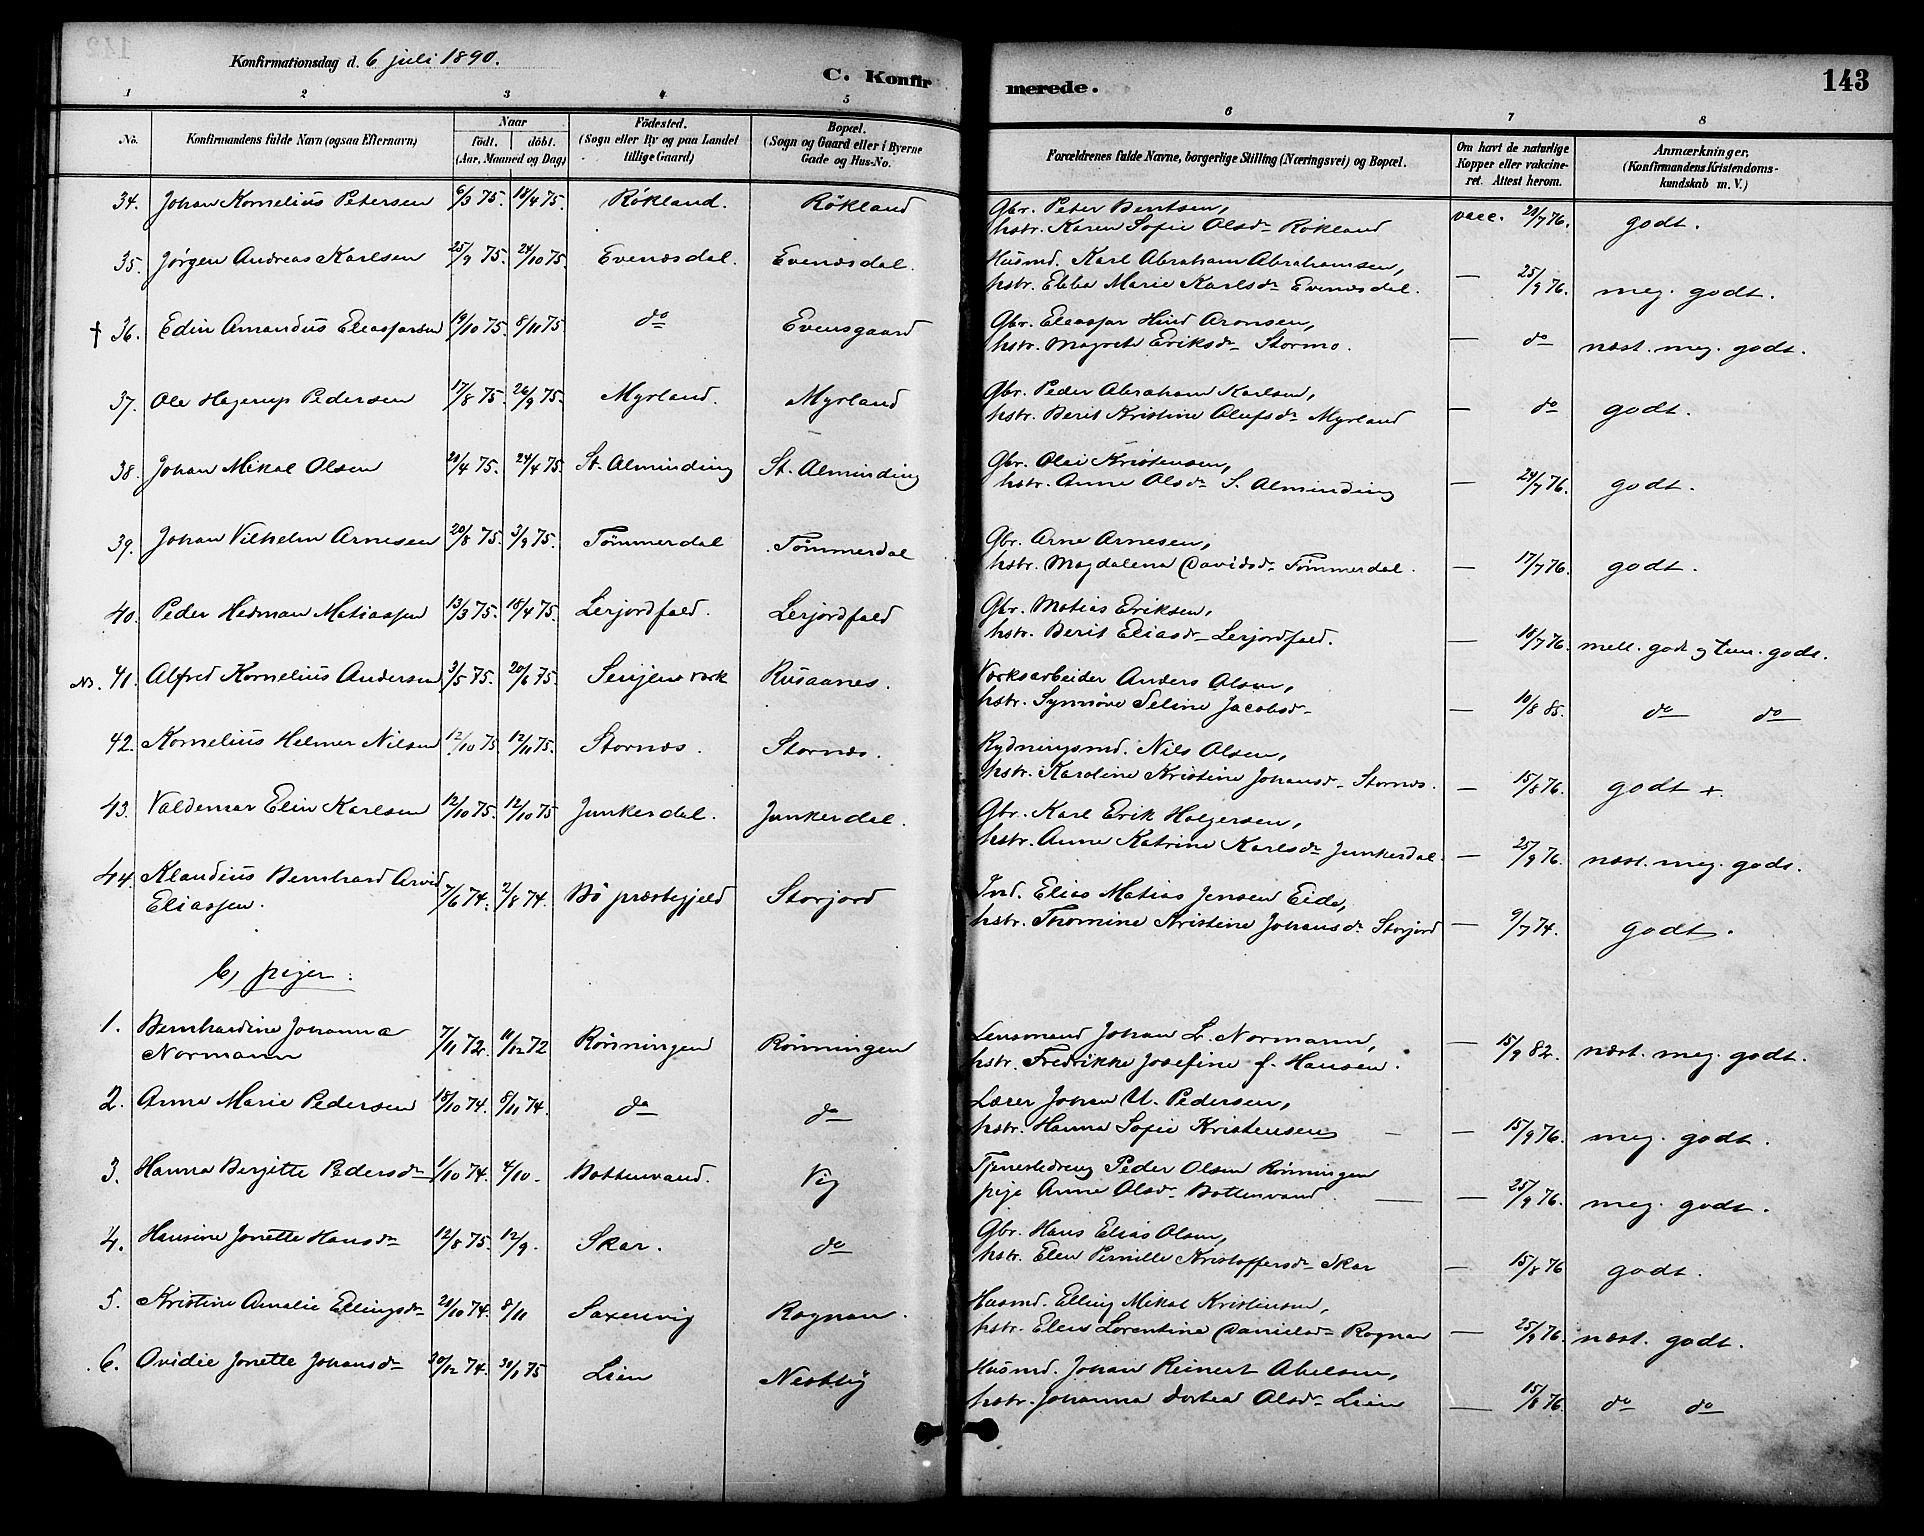 Konfirmationsdag d. 6 juli 1890.
C. Konfirmerede.
143
1 2 3 4 5 6 7 8
No. Konfirmandens fulde Navn (ogsaa Efternavn) Naar födt. döbt. (Aar, Maaned og Dag) Födested. (Sogn eller By og paa Landet tillige Gaard) Bopæl. (Sogn og Gaard eller i Byerne Gade og Hus-No. Forældrenes fulde Navne, borgerlige Stilling (Næringsvei) og Bopæl. Om havt de naturlige Kopper eller vakcineret. Attest herom. Anmærkninger, (Konfirmandens Kristendomskundskab m. V.)
34. Johan Kornelius Petersen 6/3 75. 18/4 75. Rökland. Rökland Gbr. Peter Bentsen,
hstr. Karen Sofie Olsdr Rökland vacc. 20/7 76. godt.
35. Jörgen Andreas Karlsen 25/9 75. 24/10 75. Evenæsdal. Evenæsdal. Husmd. Karl Abraham Abrahamsen,
hstr. Ebba Marie Karlsdr Evenæsdal. — 25/9 76. meg. godt.
† 36. Edin Amandus Eleasarsen 19/10 75. 8/11 75. do Evensgaard Gbr. Eleasar Hind Aronsen,
hstr. Magrete Eriksdr Stormo. — do næst. meg. godt.
37. Ole Hagerup Pedersen 17/8 75. 26/9 75. Myrland. Myrland Gbr. Peder Abraham Karlsen,
hstr. Berit Kristine Olufsdr Myrland — do godt.
38. Johan Mikal Olsen 20/4 75. 24/4 75. St. Alminding St. Alminding Gbr. Olai Kristensen,
hstr. Anne Olsdr S. Alminding — 24/7 76. godt.
39. Johan Vilhelm Arnesen 20/8 75. 3/9 75. Tömmerdal Tömmerdal Gbr. Arne Arnesen,
hstr. Magdalena Davidsdr Tömmerdal. — 17/7 76. godt.
40. Peder Hedman Matiassen 13/3 75. 18/4 75. Lerjordfald. Lerjordfald Gbr. Matias Eriksen,
hstr. Berit Eliasdr Lerjordfald. — 18/7 76. mell. godt og tem. godt.
41. Alfred Kornelius Andersen 3/5 75. 20/6 75. Senjens værk Rusaanes. Værksarbeider Anders Olsen,
hstr. Synnöve Seline Jacobsdr — 10/8 85. do do
42. Kornelius Helmer Nilsen 12/10 75 12/11 75. Stornæs. Stornæs. Rydningsmd. Nils Olsen,
hstr. Karoline Kristine Johansdr Stornæs. — 15/8 76. godt +.
43. Valdemar Elin Karlsen 12/10 75. 12/10 75 Junkerdal. Junkerdal. Gbr. Karl Erik Holgersen,
hstr. Anne Katrine Karlsdr Junkerdal. — 25/9 76. næst. meg. godt.
44. Klaudius Bernhard Arvid
Eliassen. 7/6 74. 2/8 74. Bö præstegjeld Storjord Ind. Elias Matias Jensen Eide,
hstr. Thomine Kristine Johansdr Storjord — 9/7 74. godt.
b, piger:
1. Bernhardine Johanna
Normann 7/11 72. 11/12 72 Rönningen Rönningen Lensmand Johan L. Normann,
hstr. Fredrikke Josefine f. Hansen. — 15/9 82. næst. meg. godt.
2. Anna Marie Pedersen 18/10 74. 8/11 74. do do Lærer Johan U. Pedersen,
hstr. Hanna Sofie Kristensen — — 15/9 76. meg. godt.
3. Hanna Bergitte Pedersdr 1/10 74. 4/10. Bottenvand. Vig Tjenestedreng Peder Olsen Rönningen
pige Anne Olsdr Bottenvand. — — 25/9 76. meg. godt.
4. Hansine Jonette Hansdr 12/8 75. 12/9. Skar. do Gbr. Hans Elias Olsen,
hstr. Elen Pernille Kristoffersdr Skar — 15/8 76 godt.
5. Kristine Amalie Ellingsdr 20/10 74. 8/11 Saxenvig Rognan. Husmd. Elling Mikal Kristensen,
hstr. Elen Lorentine Danielsdr Rognan — 25/9 76. næst. godt.
6. Ovidie Jonette Johansdr 30/12 74. 30/1 75 Lien Nestby Husmd. Johan Reinert Abelsen,
hstr. Johanna Dortea Olsdr Lien — 15/8 76. do do